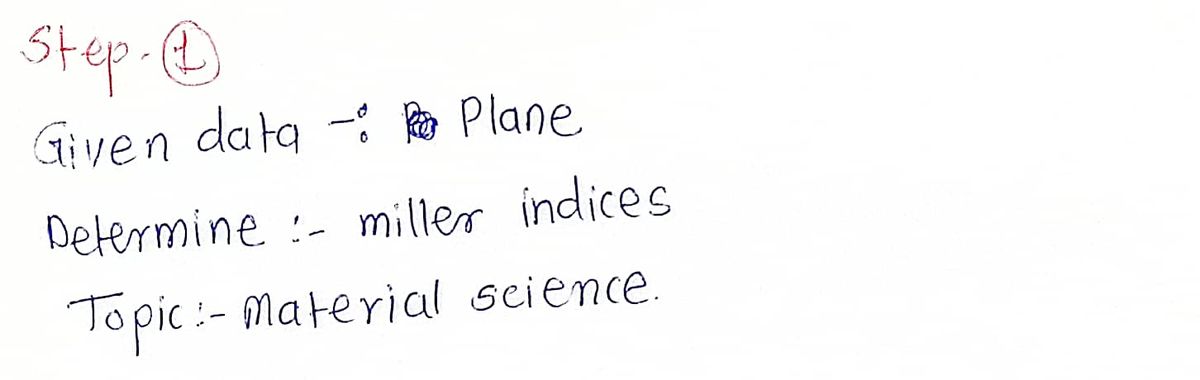 Step-①
Given data -: Plane
Determine :- miller indices
Topic :- Material science.